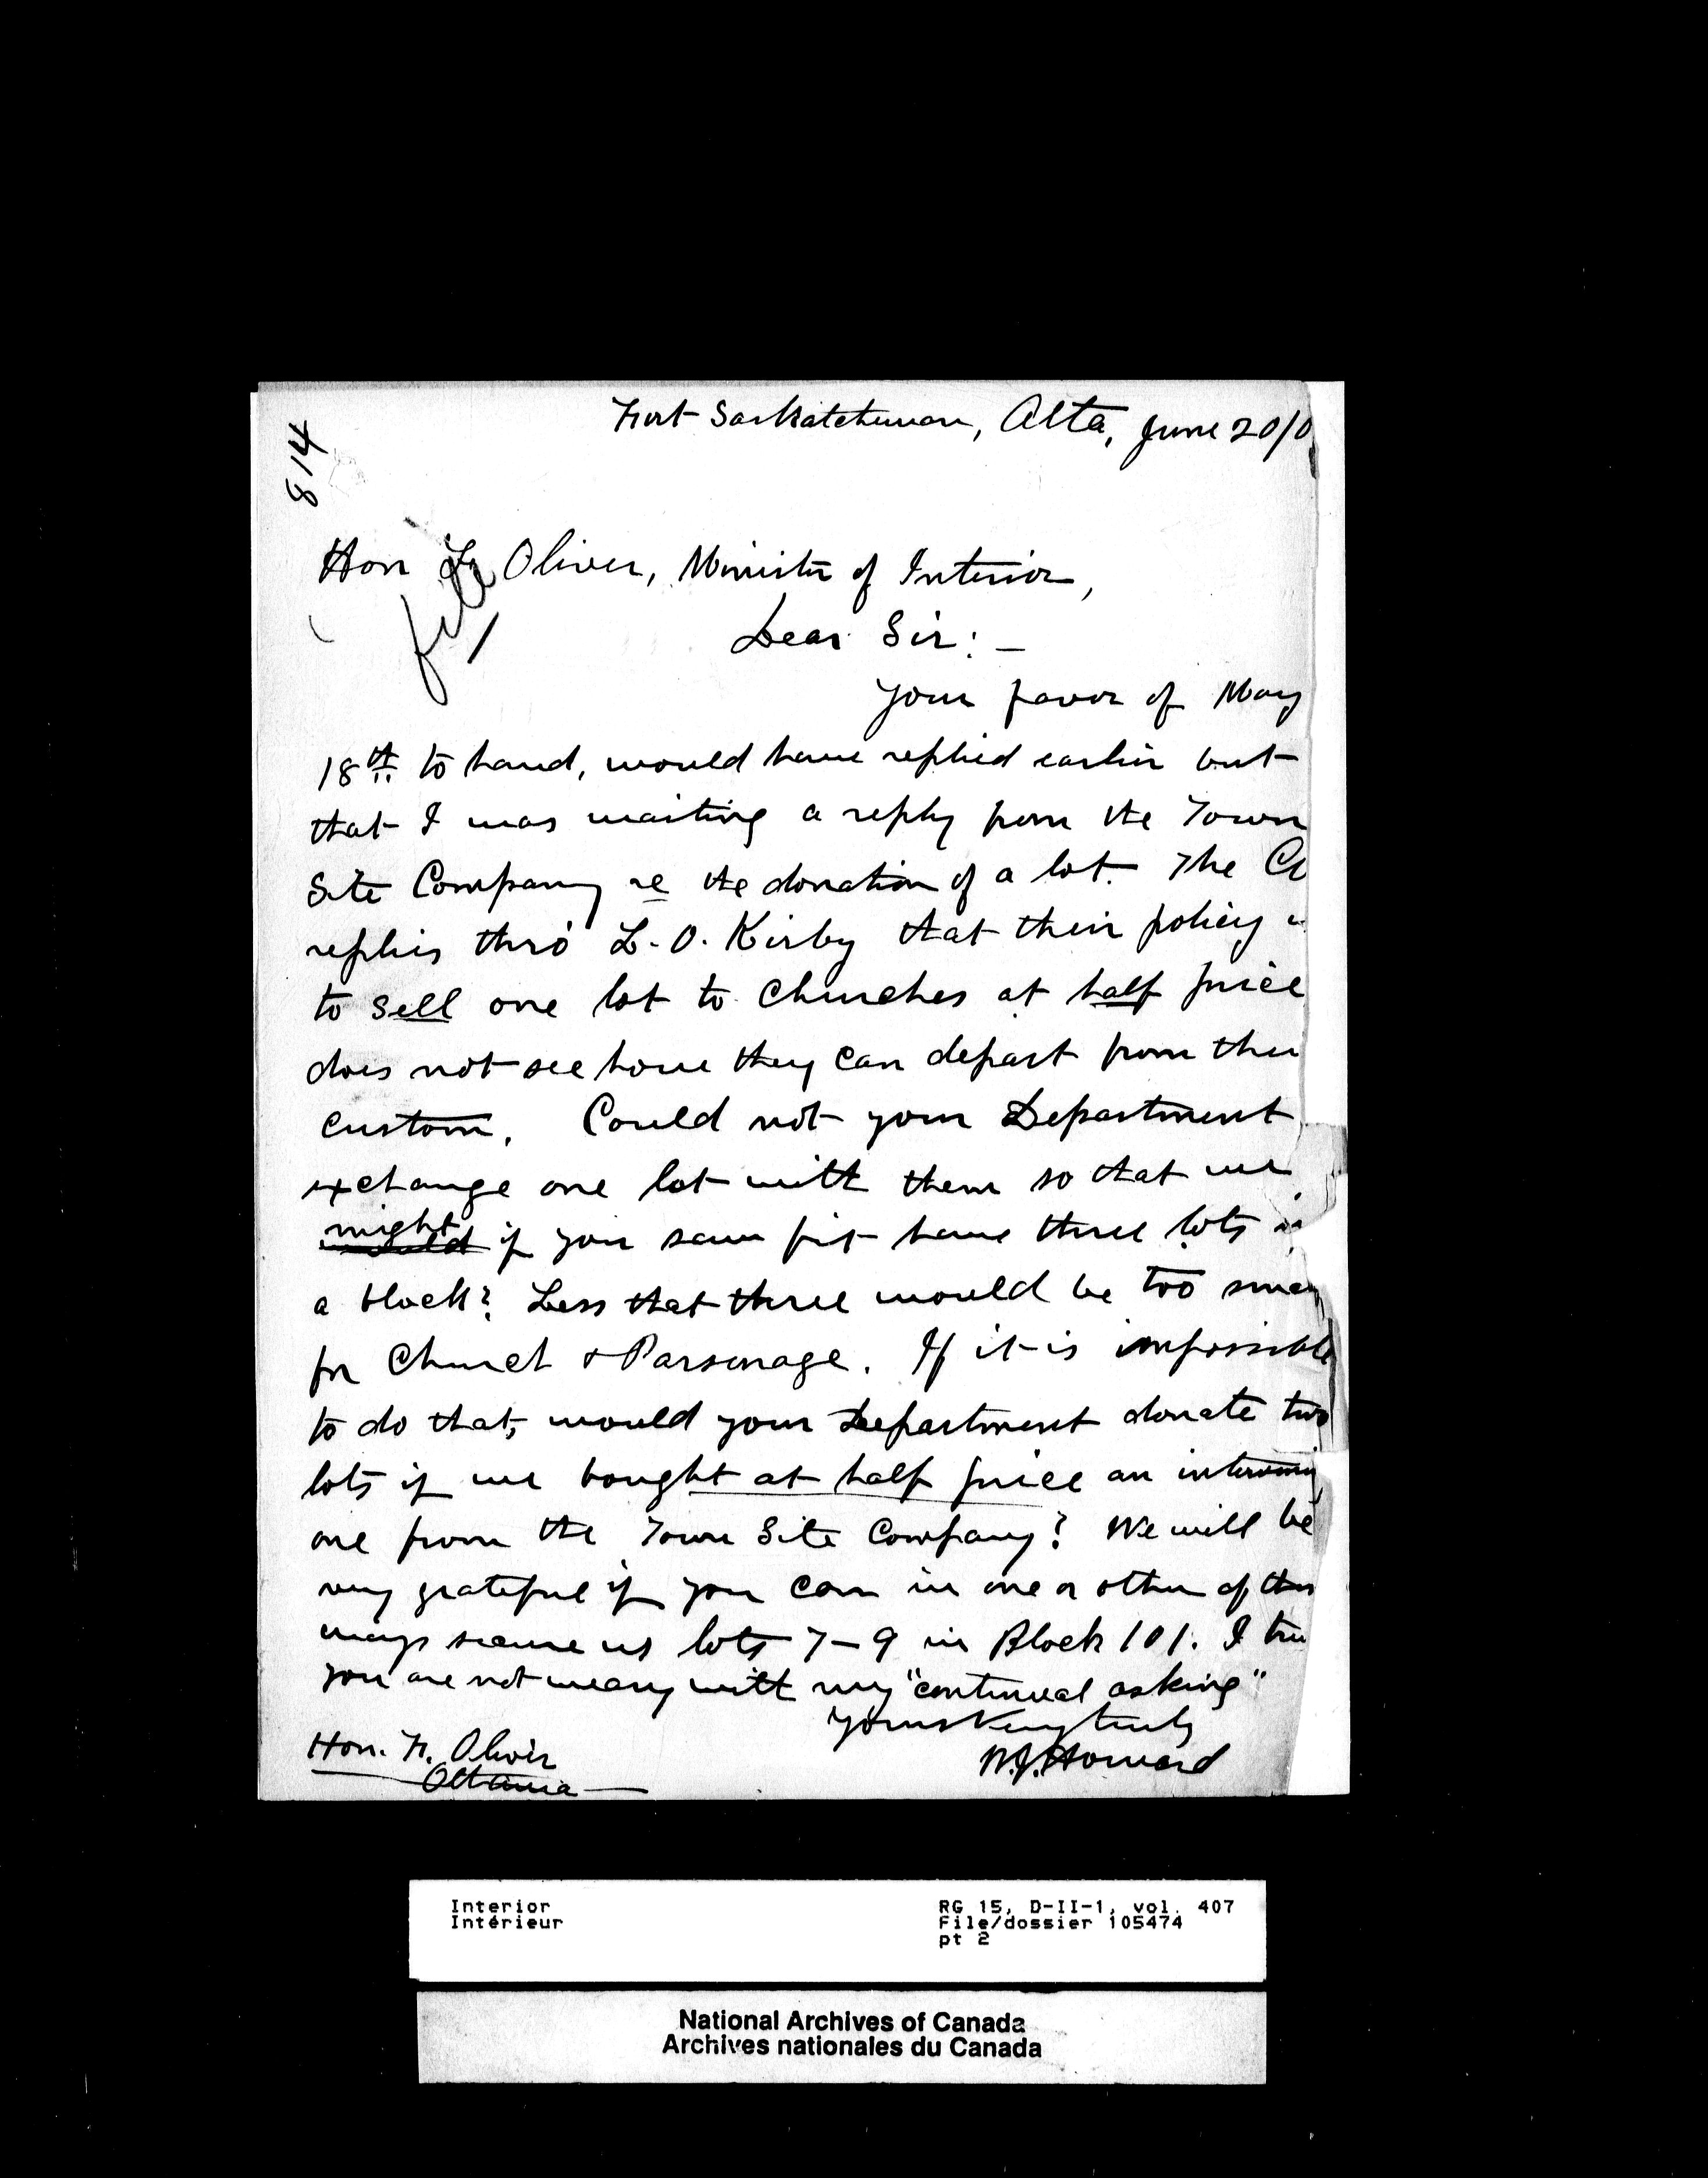 814
Fort Saskatchewan, Alta, June 20/0
Hon F. Oliver, Minister of Interior,
file
Dear Sir: —
Your favor of May
18th to hand, would have replied earlier but
that I was waiting a reply from the Town
Site Company re the donation of a lot. The
replies thro' L. O. Kirby that their policy
to sell one lot to Churches at half price
does not see how they can depart from
custom. Could not your Department
exchange one lot with them so that we
might if you saw fit have three lots
a block? Less that three would be too
for Church & Parsonage. If it is impossible
to do that, would your Department donate two
lots if we bought at half price an intervening
one from the Town Site Company? We will be
very grateful if you can in one or other of
ways secure us lots 7-9 in Block 101. I
you are not weary with my "continual asking"
Yours Very truly
W.J. Howard
Hon. F. Oliver
Ottawa
Interior
Intérieur
RG 15, D-II-1, vol. 407
File/dossier 105474
pt 2
National Archives of Canada
Archives nationales du Canada